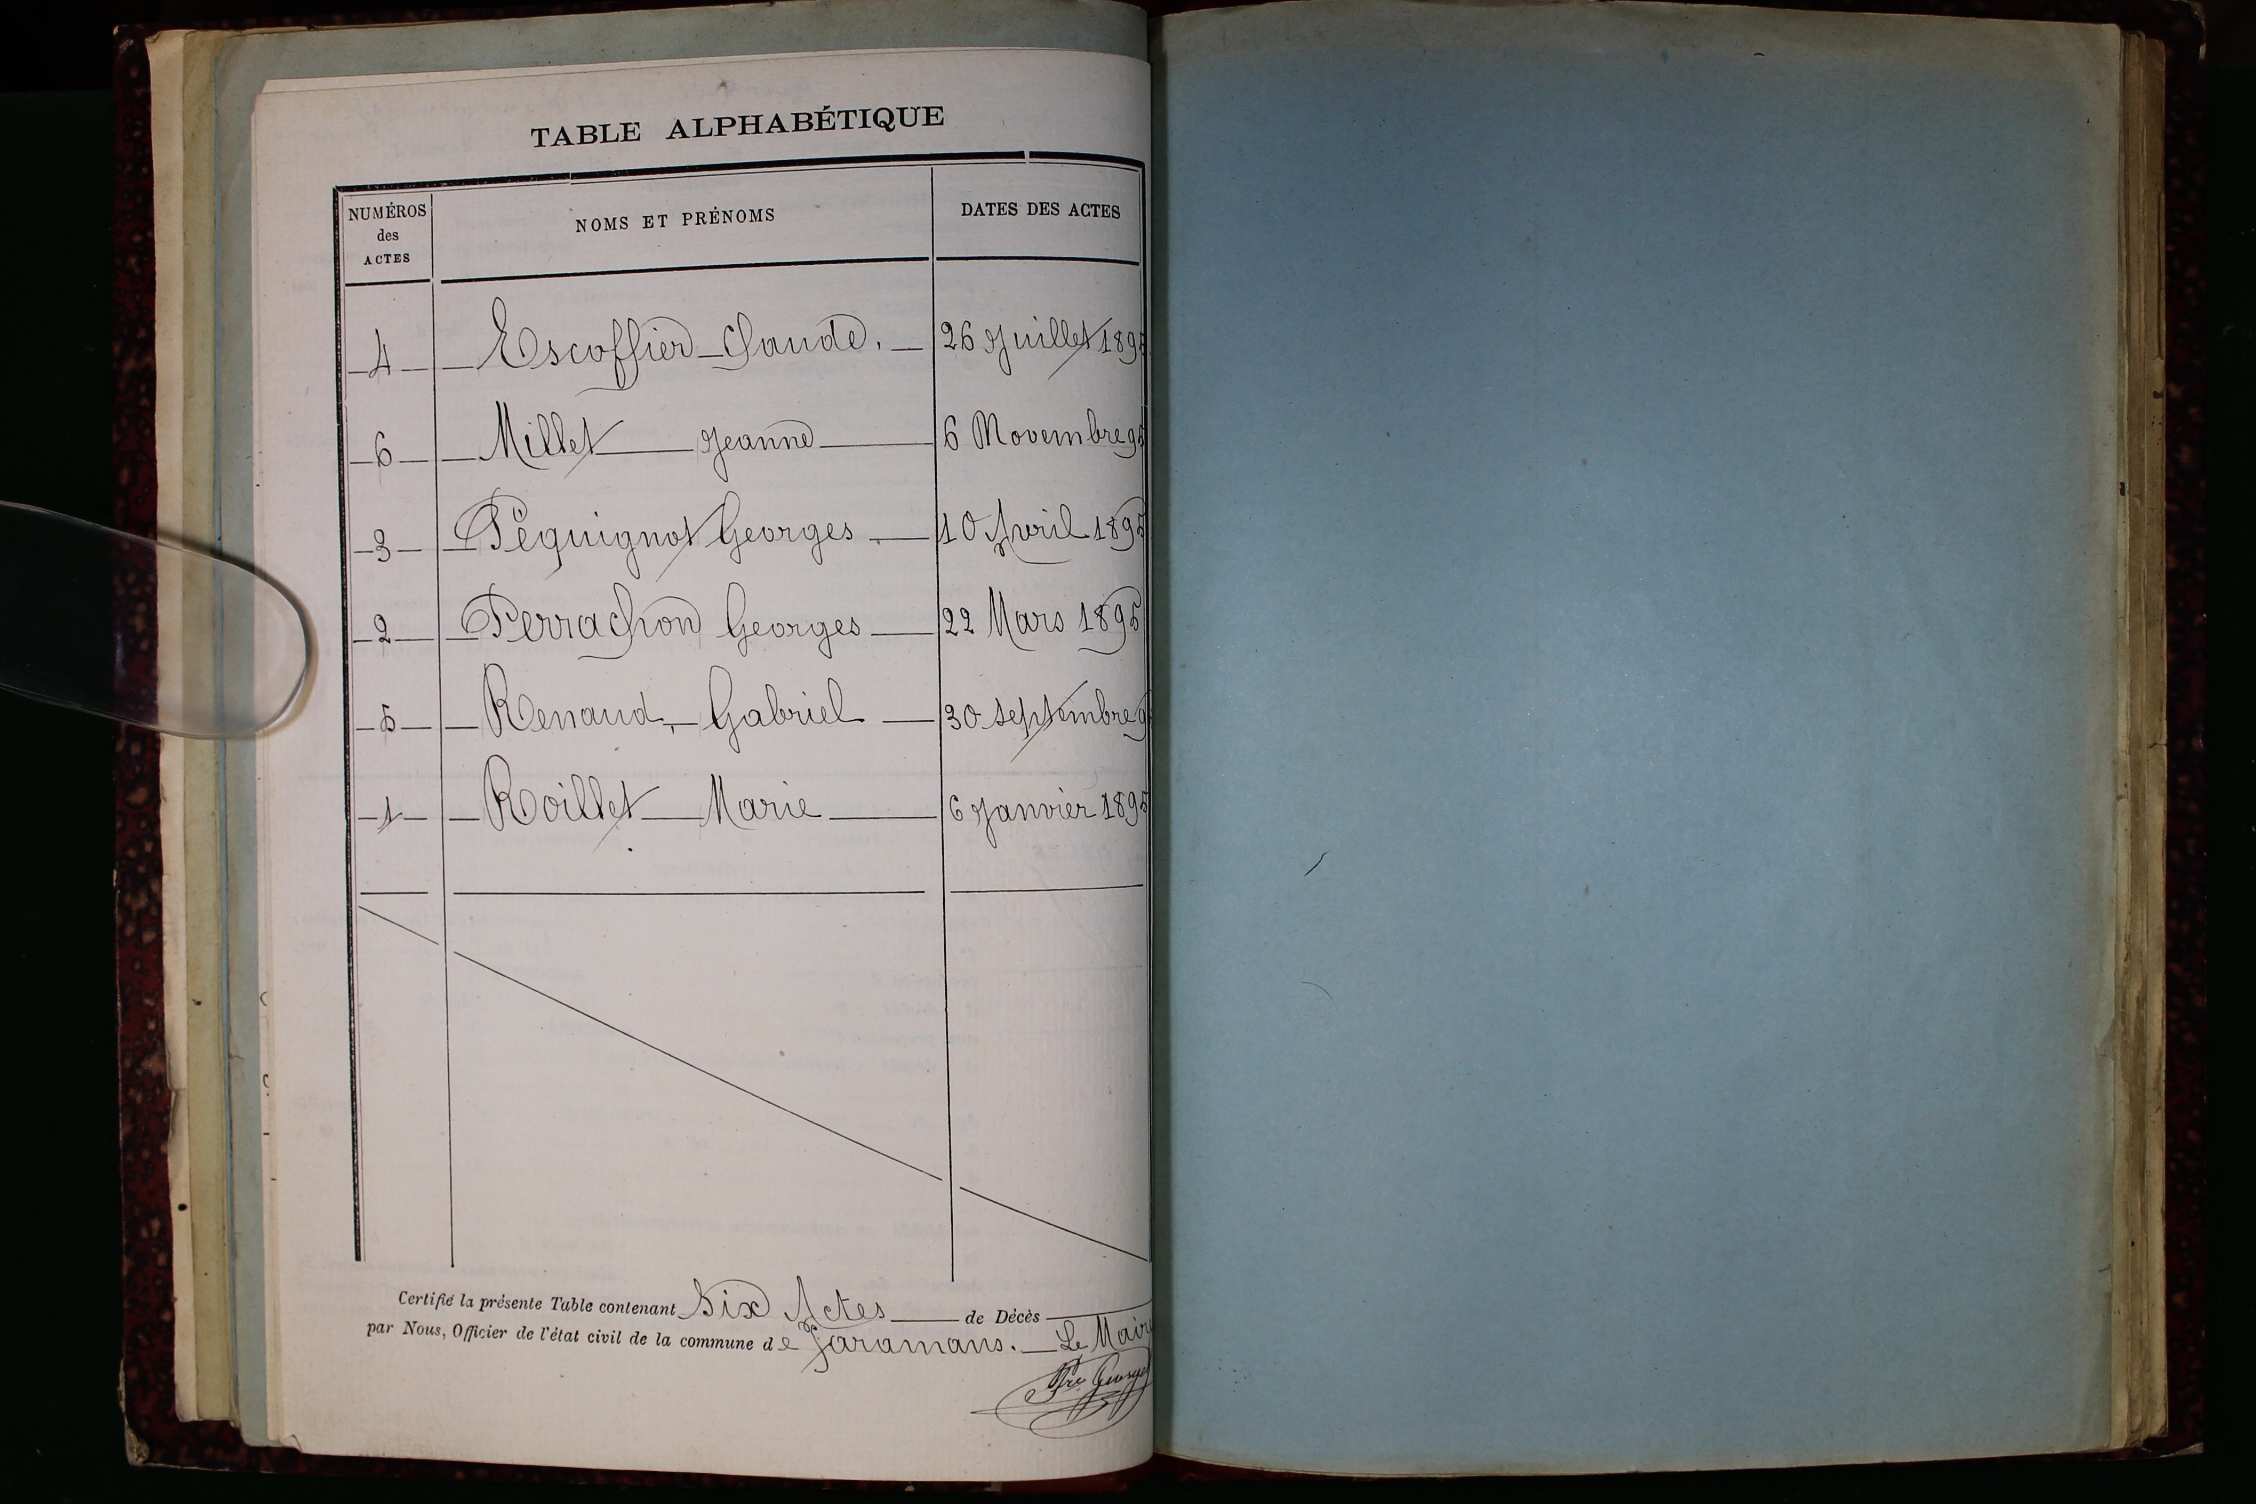 TABLE ALPHABÉTIQUE
NUMÉROS des ACTES NOMS ET PRÉNOMS DATES DES ACTES
4 Escoffier Claude. 26 Juillet 1895
6 Millet Jeanne 6 Novembre 95
3 Péquignot Georges 10 Avril 1895
2 Perrachon Georges 22 Mars 1895
5 Renaud, Gabriel 30 septembre 9
1 Roillet Marie 6 Janvier 1895
Certifié la présente Table contenant Six Actes de Décès
par Nous, Officier de l'état civil de la commune de Faramans. Le Maire